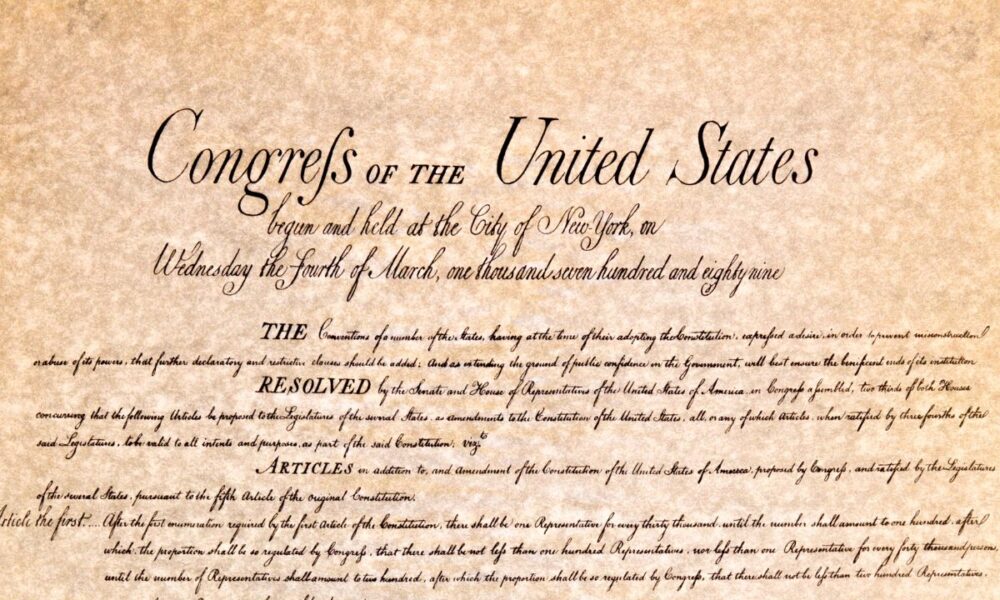 Congreſs OF THE United States
begun and held at the City of New-York, on
Wednesday the fourth of March, one thousand seven hundred and eighty nine
THE Conventions of a number of the States, having at the time of their adopting the Constitution, expreſsed a desire, in order to prevent misconstruction
or abuse of its powers, that further declaratory and restrictive clauses should be added: And as extending the ground of public confidence in the Government, will best ensure the beneficent ends of its institution
RESOLVED by the Senate and House of Representatives of the United States of America, in Congreſs aſsembled, two thirds of both Houses
concurring, that the following Articles be proposed to the Legislatures of the several States, as amendments to the Constitution of the United States, all, or any of which Articles, when ratified by three fourths of the
said Legislatures, to be valid to all intents and purposes, as part of the said Constitution; vizt
ARTICLES in addition to, and Amendment of the Constitution of the United States of America, proposed by Congreſs, and ratified by the Legislatures
of the several States, pursuant to the fifth Article of the original Constitution.
Article the first.... After the first enumeration required by the first Article of the Constitution, there shall be one Representative for every thirty thousand, until the number shall amount to one hundred, after
which, the proportion shall be so regulated by Congreſs, that there shall be not leſs than one hundred Representatives, nor leſs than one Representative for every forty thousand persons,
until the number of Representatives shall amount to two hundred, after which the proportion shall be so regulated by Congreſs, that there shall not be leſs than two hundred Representatives,